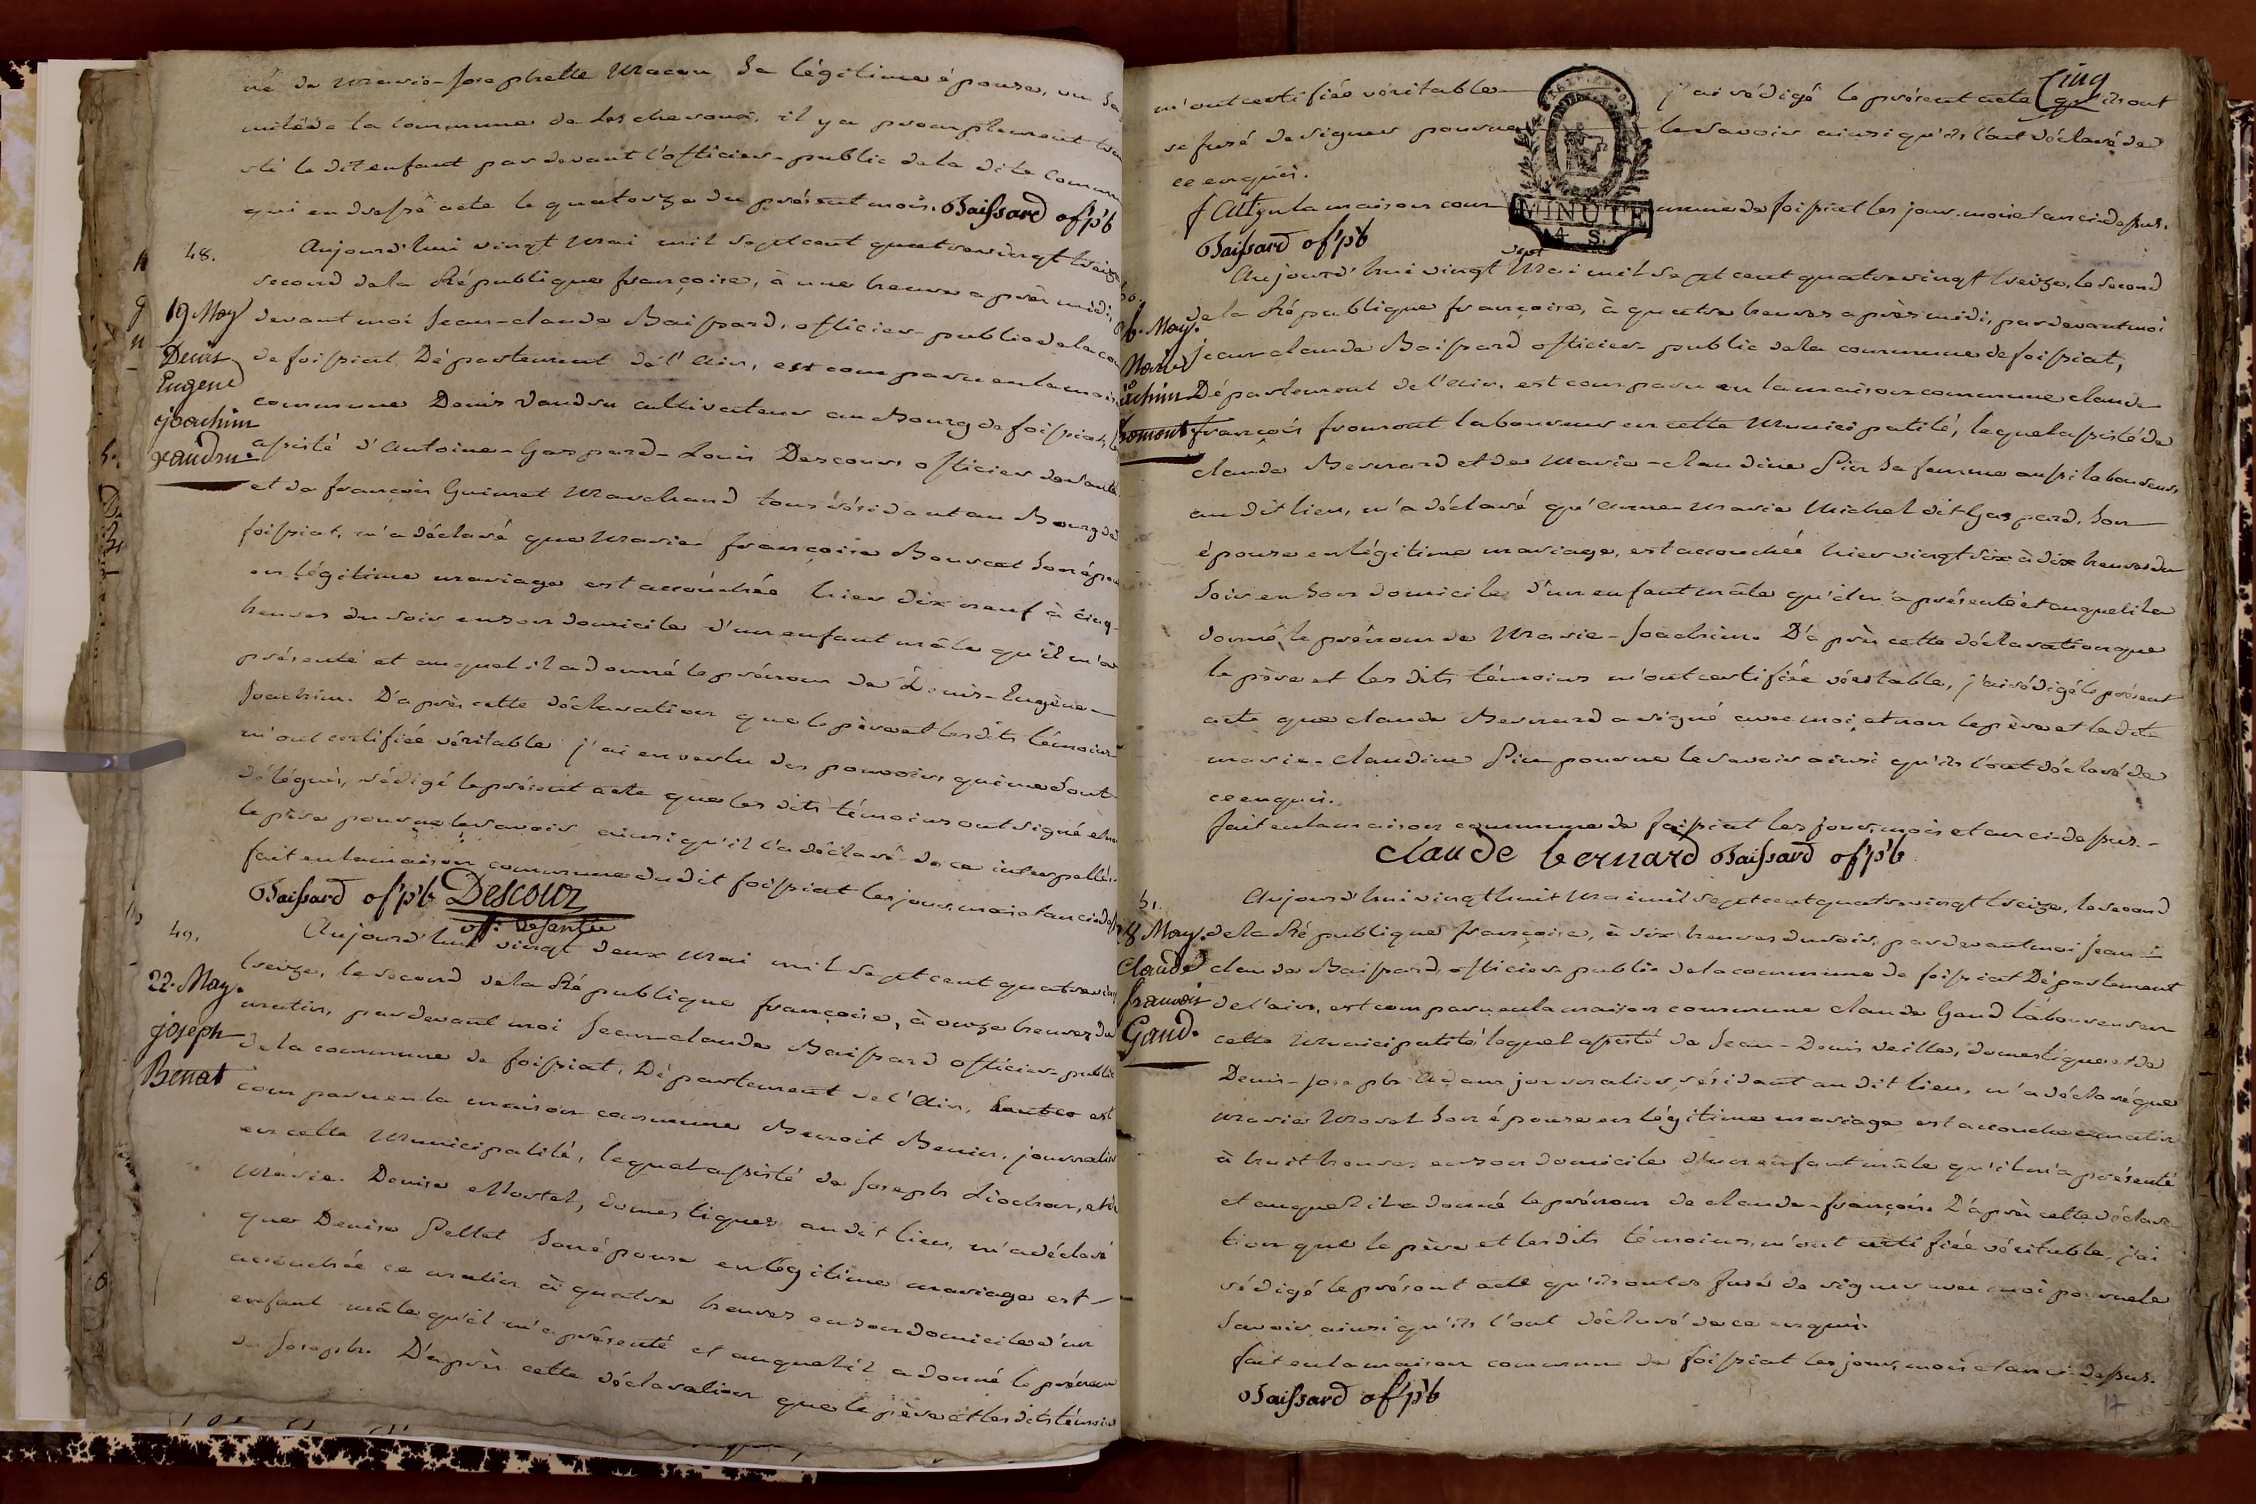 né de Marie-Josephette Macon sa légitime épouse, en sa
de la commune de Leschevoux, il y a promptement
le dit enfant par devant l'officier public de la dite Commun
qui en dressé acte le quatorze du présent mois. Baissard of. pb
48.
19 May
Denis
Eugene
joachim
Vaudru.
Aujourd'hui vingt Mai mil sept cent quatrevingt treize
second de la République françoise, à une heure après midi,
devant moi Jean-claude Baissard, officier public de la com
de foissiat Département de l'Ain, est comparu en la maison
commune Denis Vaudru cultivateur au Bourg de foissiat, le
assisté d'Antoine-Gaspard-Louis Descours officier de santé
et de françois Guimet Marchand tous résidant au Bourg de
foissiat, m'a déclaré que Marie françoise Bouvet son épou
en légitime mariage est accouchée hier dix neuf à cinq
heures du soir en son domicile d'un enfant mâle qu'il m'a
présenté et auquel il a donné le prénom de Denis-Eugène-
Joachim. D'après cette déclaration que le père et les dits témoins
m'ont certifiée véritable j'ai en vertu des pouvoirs qui me sont
délégués, rédigé le présent acte que les dits témoins ont signé et non
le père pour ne le savoir ainsi qu'il l'a déclaré de ce interpellé.
fait en la maison commune du dit foissiat les jour, mois et an ci-dessus
Baissard of. pb Descour
off. de santé
49.
22. May.
joseph
Benat
Aujourd'hui vingt deux Mai mil sept cent quatrevingt
treize, le second de la République françoise, à onze heures du
matin, pardevant moi Jean-claude Baissard officier public
de la commune de foissiat, Département de l'Ain, est
comparu en la maison commune Benoit Benier, journalier
en cette Municipalité, lequel assisté de Joseph Liochon, et de
Marie-Denise Mortel, domestiques au dit lieu, m'a déclaré
que Denise Pellet son épouse en légitime mariage est
accouchée ce matin à quatre heures en son domicile d'un
enfant mâle qu'il m'a présenté et auquel il a donné le prénom
de Joseph. D'après cette déclaration que le père et les dits témoins
Cinq
m'ont certifiée véritable j'ai rédigé le présent acte qu'ils ont
refusé de signer pour ne le savoir ainsi qu'ils l'ont déclaré de
ce enquis.
MINUTE
4 S.
fait en la maison commune de foissiat les jour, mois et an ci-dessus.
Baissard of. pb
50.
May.
Marie
joachim
fromont
Aujourd'hui vingt sept Mai mil sept cent quatrevingt treize, le second
de la République françoise, à quatre heures après midi, pardevant moi
Jean claude Baissard officier public de la commune de foissiat,
Département de l'Ain, est comparu en la maison commune claude
françois fromont laboureur en cette Municipalité, lequel assisté de
claude Bernard et de Marie-claudine Pin sa femme aussi laboureurs
au dit lieu, m'a déclaré qu'Anne Marie Michel dit Gaspard, son
épouse en légitime mariage, est accouchée hier vingt six à dix heures du
soir en son domicile d'un enfant mâle qu'il m'a présenté et auquel il a
donné le prénom de Marie-Joachim. D'après cette déclaration que
le père et les dits témoins m'ont certifiée véritable, j'ai rédigé le présent
acte que claude Bernard a signé avec moi, et non le père et la dite
marie-claudine Pin pour ne le savoir ainsi qu'ils l'ont déclaré de
ce enquis.
fait en la maison commune de foissiat les jour, mois et an ci-dessus.-
claude bernard Baissard of. pb
51.
28 May.
Claude
françois
Gaud.
Aujourd'hui vingt huit Mai mil sept cent quatrevingt treize, le second
de la République françoise, à six heures du soir, pardevant moi Jean
claude Baissard, officier public de la commune de foissiat Département
de l'ain, est comparu en la maison commune claude Gaud laboureur en
cette Municipalité lequel assisté de Jean-Denis veille, domestique et de
Denis-Joseph Adam journalier, résidant au dit lieu, m'a déclaré que
Marie Morel son épouse en légitime mariage est accouchée ce matin
à huit heures en son domicile d'un enfant mâle qu'il m'a présenté
et auquel il a donné le prénom de claude-françois. D'après cette déclara-
tion que le père et les dits témoins, m'ont certifiée véritable, j'ai
rédigé le présent acte qu'ils ont refusé de signer avec moi pour ne le
savoir ainsi qu'ils l'ont déclaré de ce enquis.
fait en la maison commune de foissiat les jour, mois et an ci-dessus.
Baissard of. pb
17